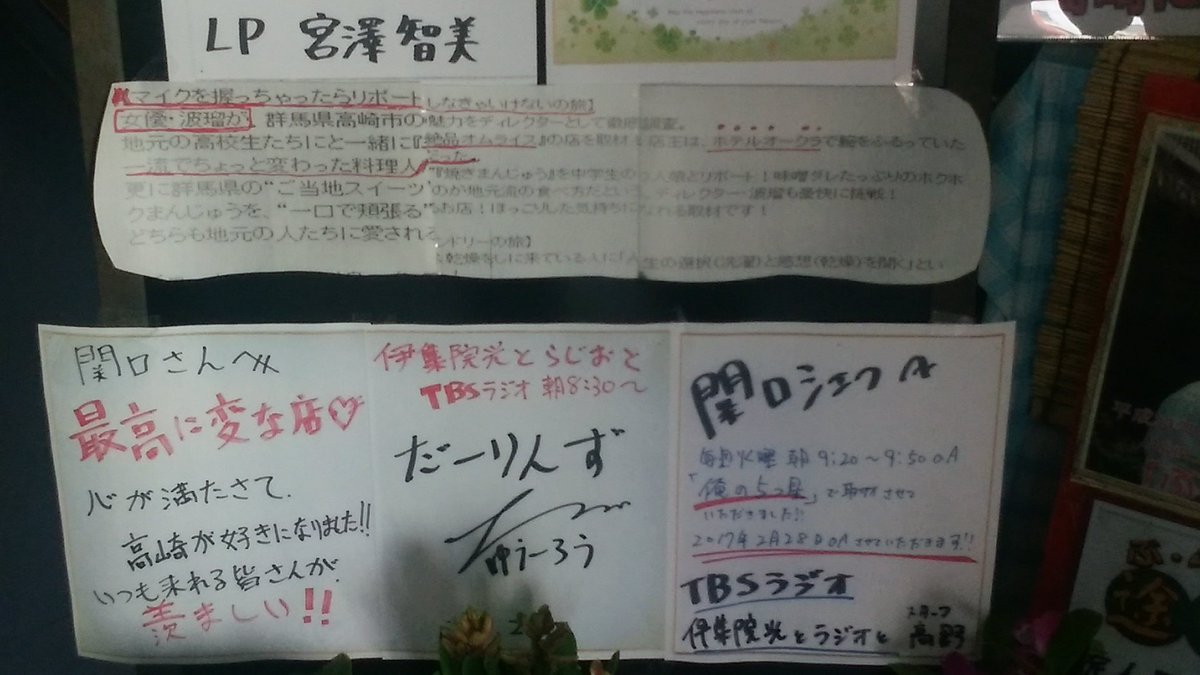 LP 宮澤智美
マイクを握っちゃったらリポートしなきゃいけないの旅】
女優・波瑠が、群馬県高崎市の魅力をディレクターとして徹底調査。
地元の高校生たちにと一緒に『絶品オムライス』の店を取材!店主は、ホテルオークラで腕をふるっていた
一流でちょっと変わった料理人だった
『焼きまんじゅう』を中学生の人娘とリポート!味噌ダレたっぷりのホクホ
更に群馬県の“ご当地スイーツのが地元流の食べ方だという。ディレクター・波瑠も豪快に挑戦!
クまんじゅうを、“一口で頬張る”お店!ほっこりした気持ちになれる取材です!
どちらも地元の人たちに愛される
ンドリーの旅】
乾燥をしに来ている人に「人生の選択(洗濯)と感想(乾燥)を聞く」とい
関口さんへ
最高に変な店♡
心が満たさて、
高崎が好きになりました!!
いつも来れる皆さんが、
羨ましい!!
伊集院光とらじおと
TBSラジオ 朝8:30〜
だーりんず
ゆうーろう
関口シェフへ
毎週火曜 朝9:20〜9:50 OA
「俺の5つ星」で取材させて
いただきました!!
2017年2月28日OAさせていただきます!!
TBSラジオ
伊集院光とラジオと スタッフ 高野
平成
途